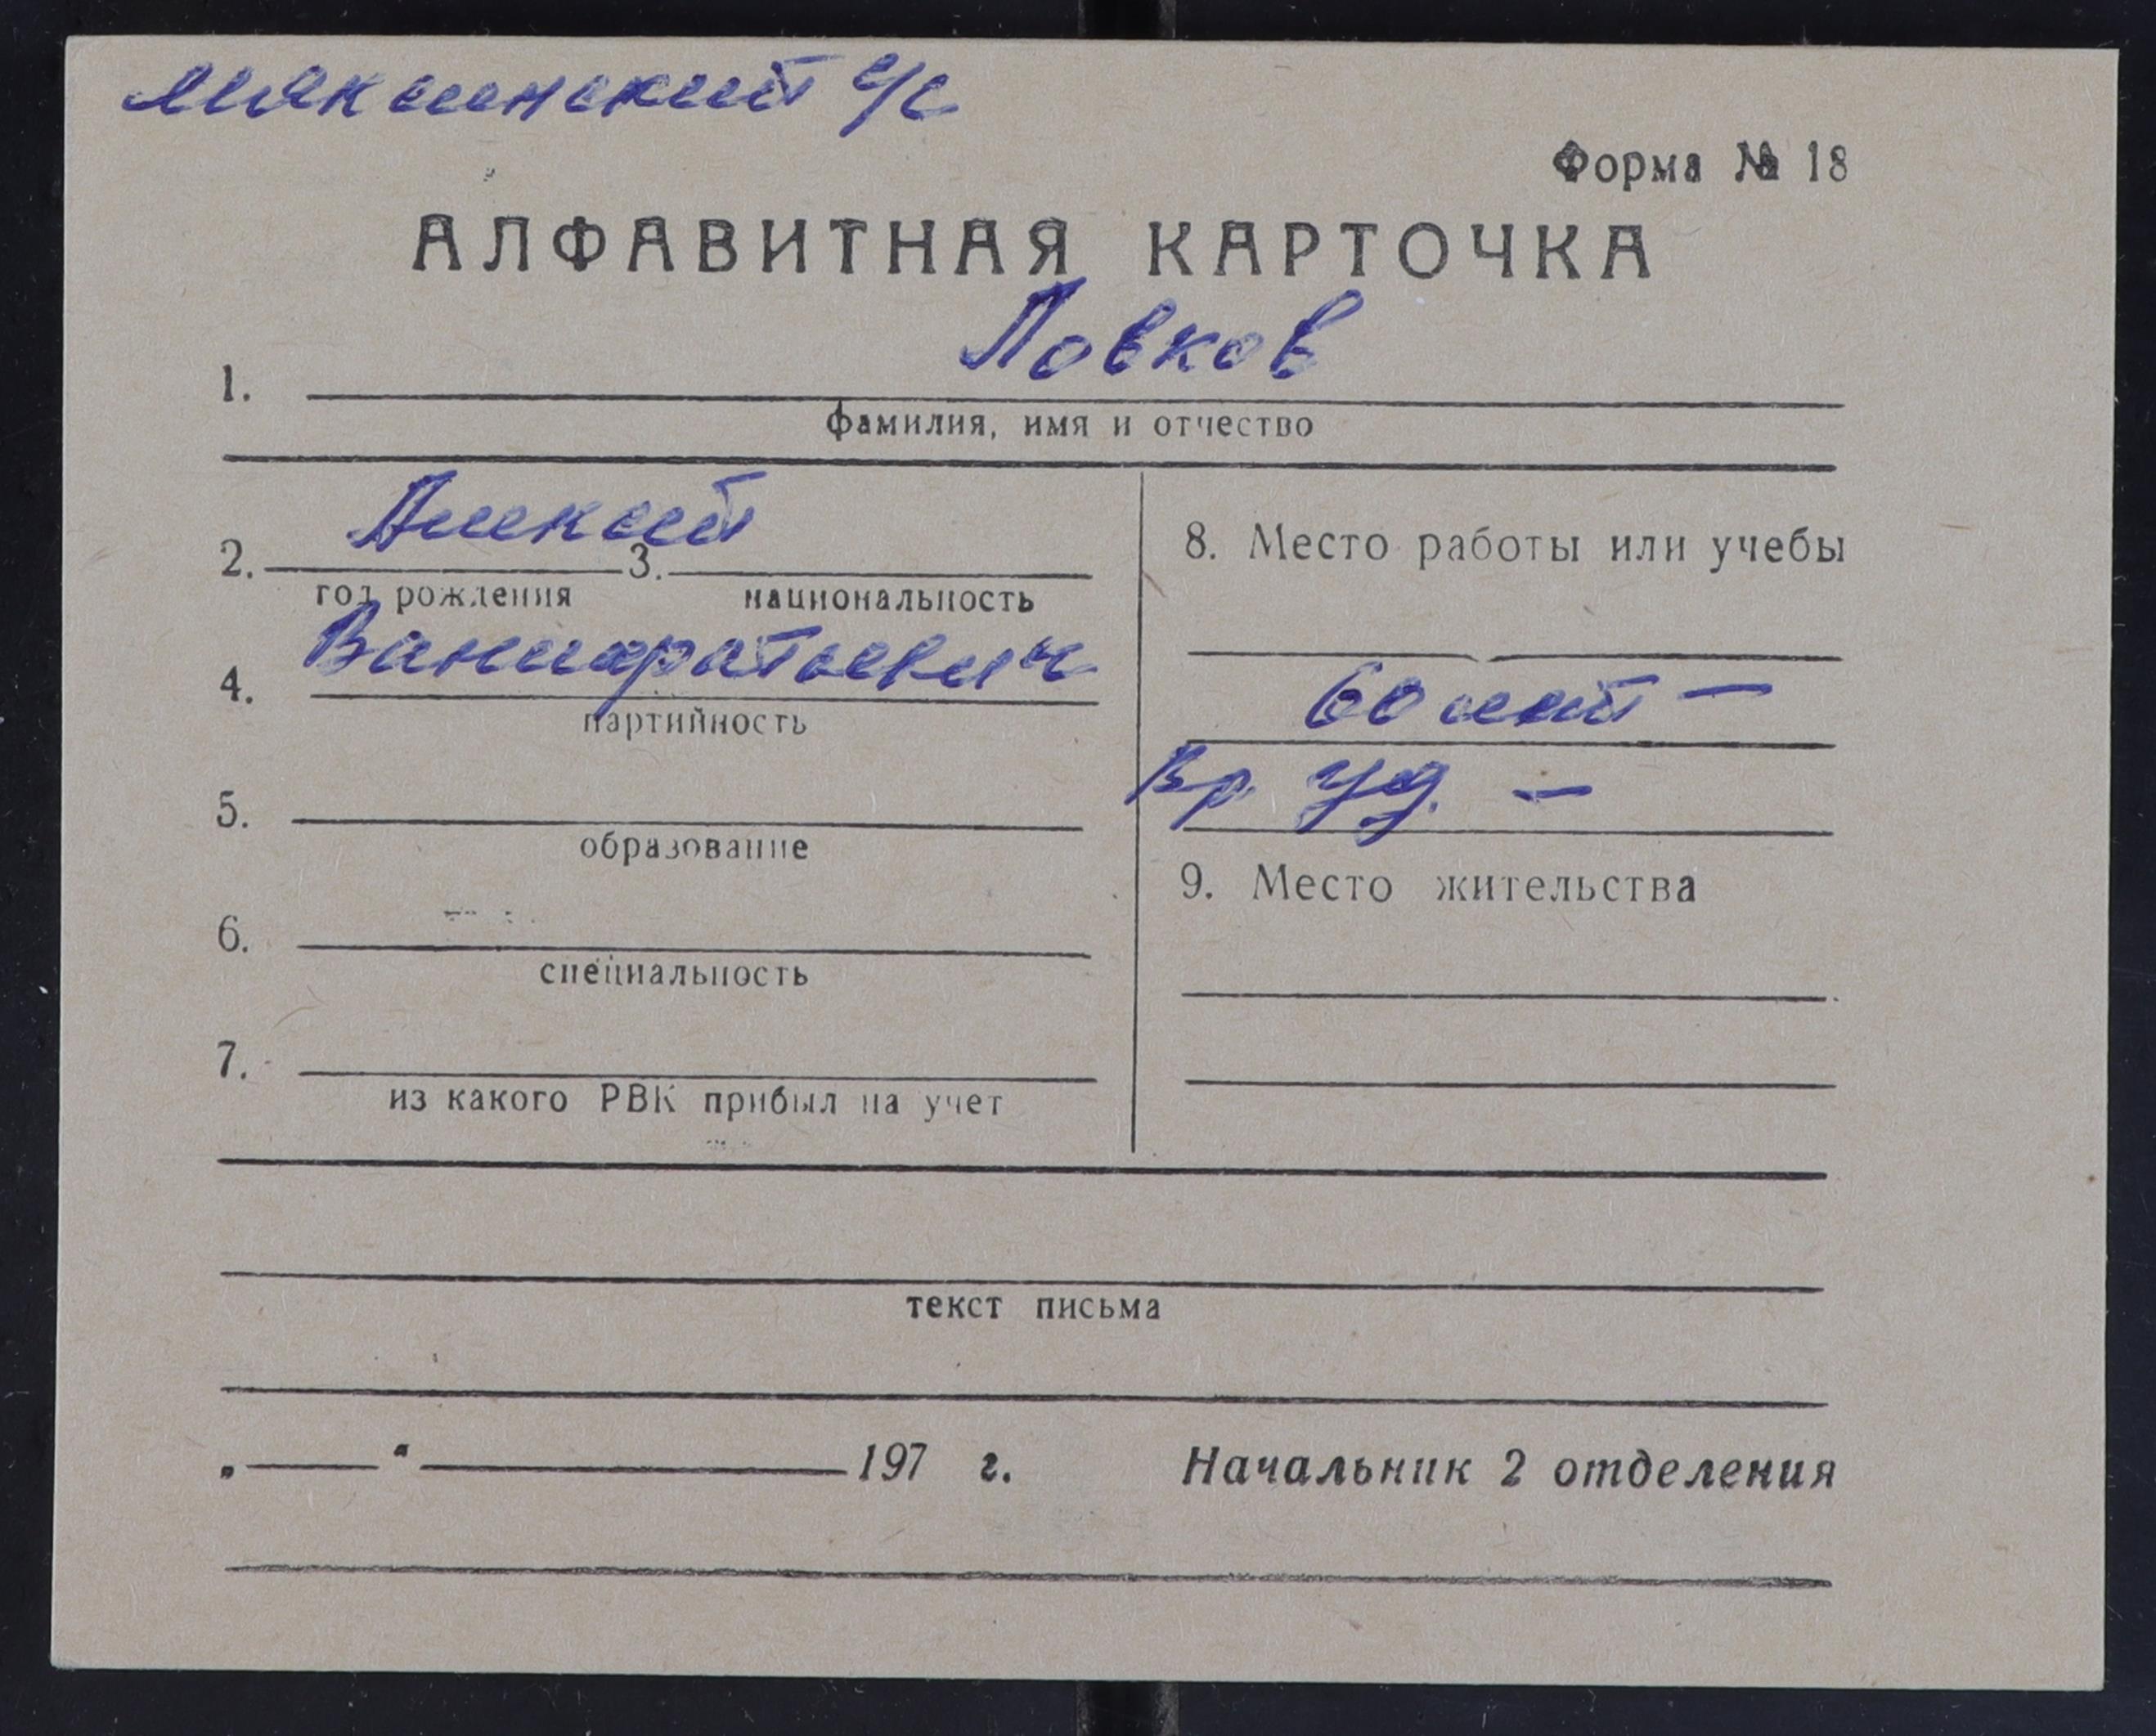 Мяксинский с/с
Форма № 18
АЛФАВИТНАЯ КАРТОЧКА
Ловков
1.
фамилия, имя и отчество
Алексей
2. 3.
год рождения национальность
8. Место работы или учебы
4.
партийность
60 лет –
Вр. уд. –
5.
образование
9. Место жительства
6.
специальность
7.
из какого РВК прибыл на учет
текст письма
„ “ 197 г. Начальник 2 отделения